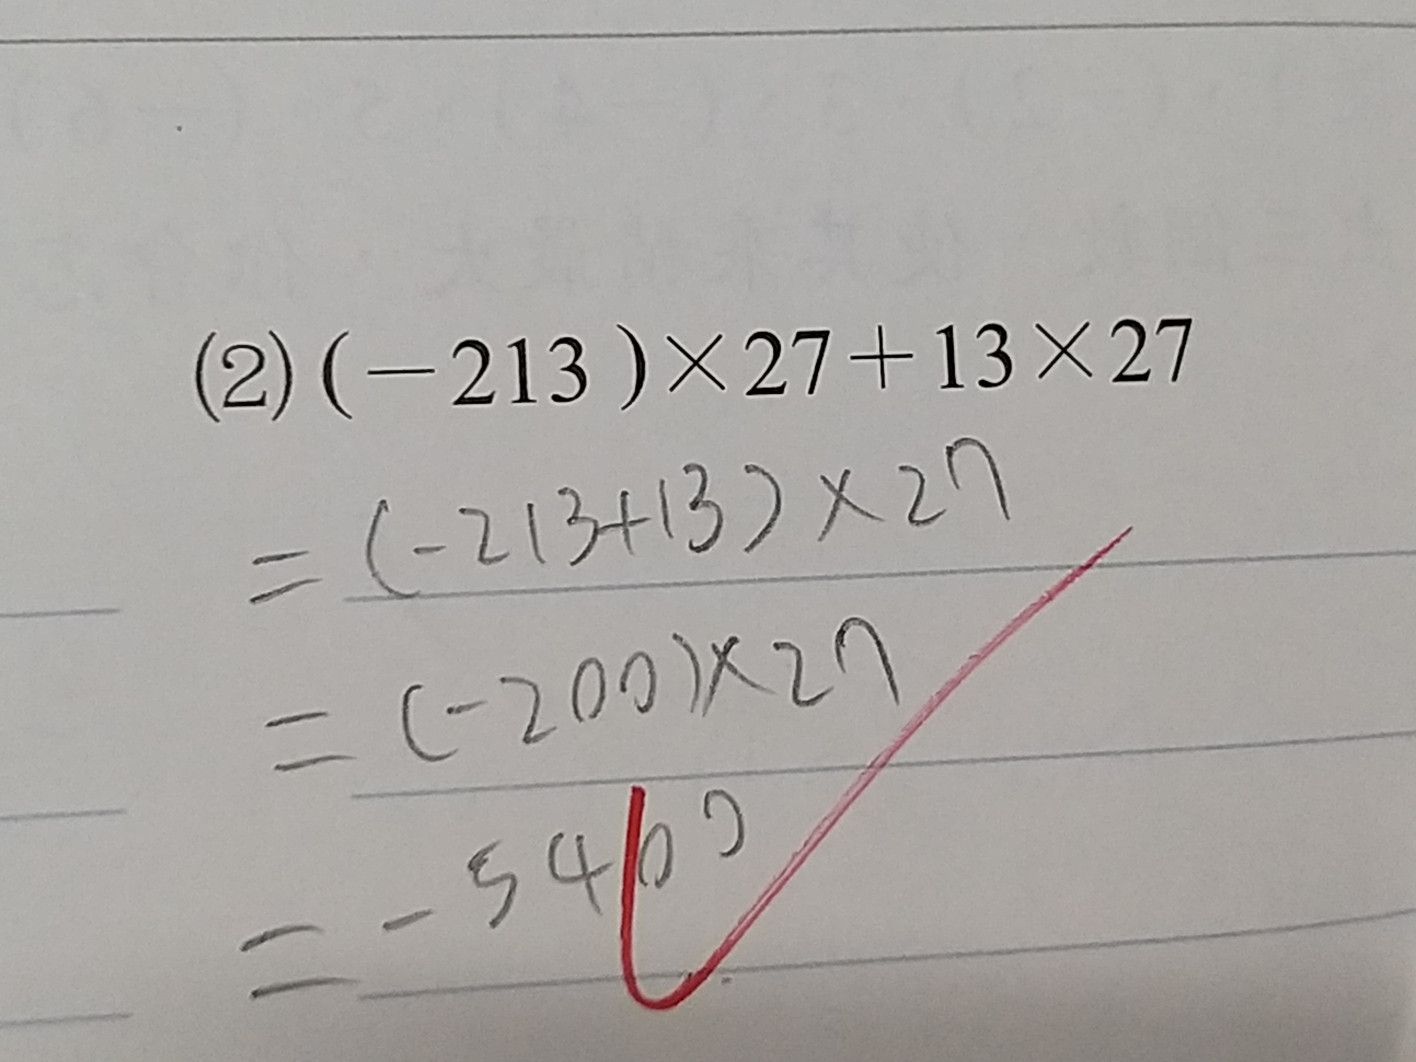 (2)(-213)×27+13×27
=(-213+13)×27
=(-200)×27
=-5400